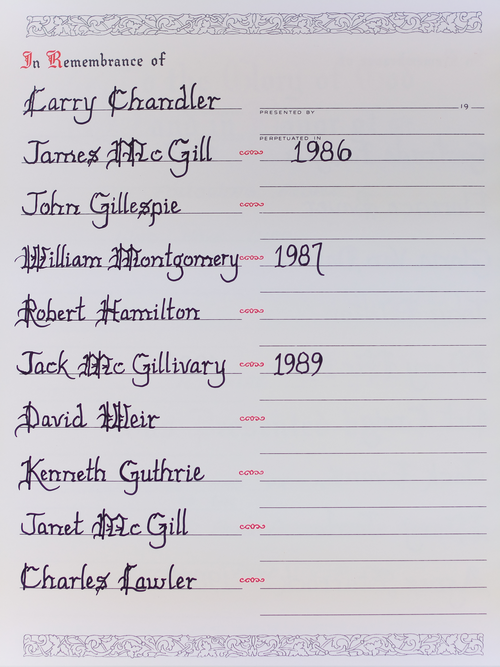 In Remembrance of
Larry Chandler
PRESENTED BY 19
PERPETUATED IN
James McGill 1986
John Gillespie
William Montgomery 1987
Robert Hamilton
Jack McGillivary 1989
David Weir
Kenneth Guthrie
Janet McGill
Charles Lawler